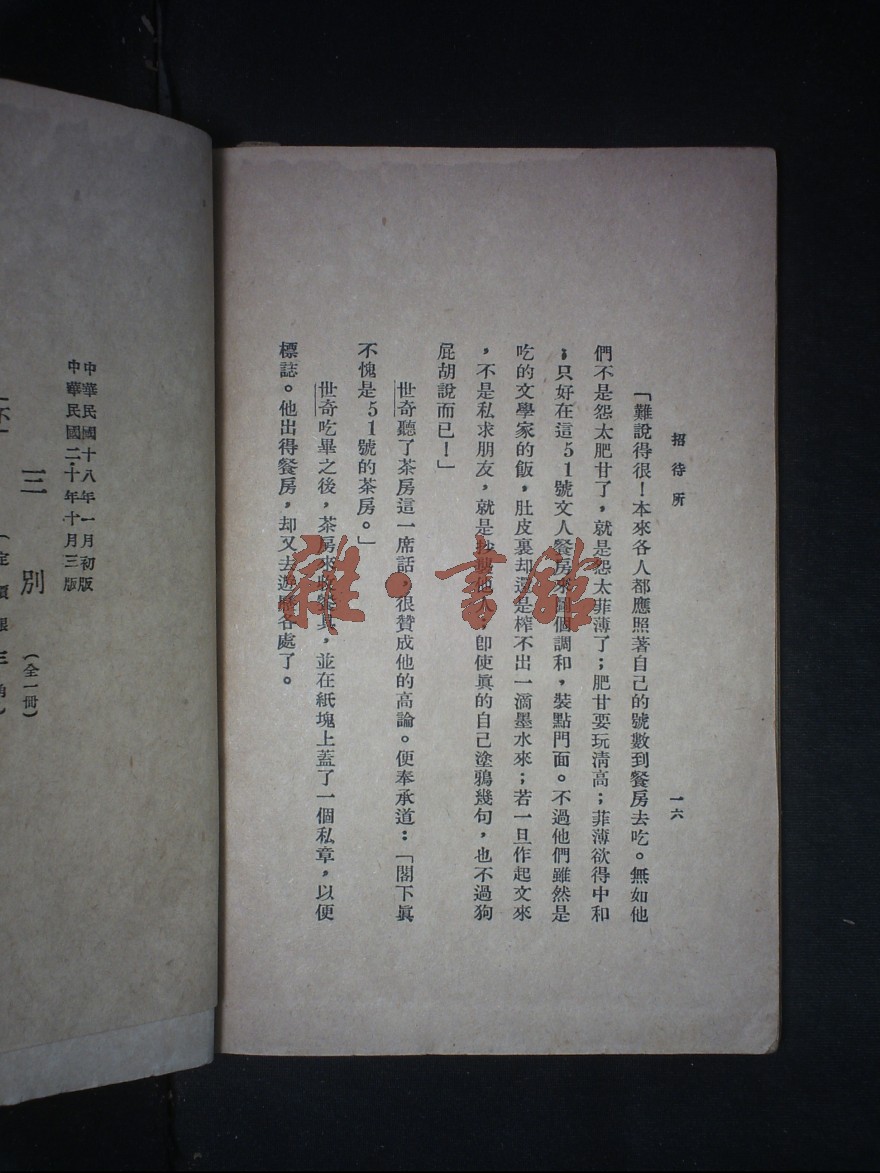 招待所
一六
「難說得很！本來各人都應照著自己的號數到餐房去吃。無如他
們不是怨太肥甘了，就是怨太菲薄了；肥甘要玩清高；菲薄欲得中和
；只好在這51號文人餐房來個調和，裝點門面。不過他們雖然是
吃的文學家的飯，肚皮裏却還是榨不出一滴墨水來；若一旦作起文來
，不是私求朋友，就是抄襲他人；卽使眞的自己塗鴉幾句，也不過狗
屁胡說而已！」
世奇聽了茶房這一席話，很贊成他的高論。便奉承道：「閣下眞
不愧是51號的茶房。」
世奇吃畢之後，茶房來收餐具，並在紙塊上蓋了一個私章，以便
標誌。他出得餐房，却又去遊歷各處了。
中華民國十八年一月初版
中華民國二十年十月三版
三別
（全一冊）
雜·書館